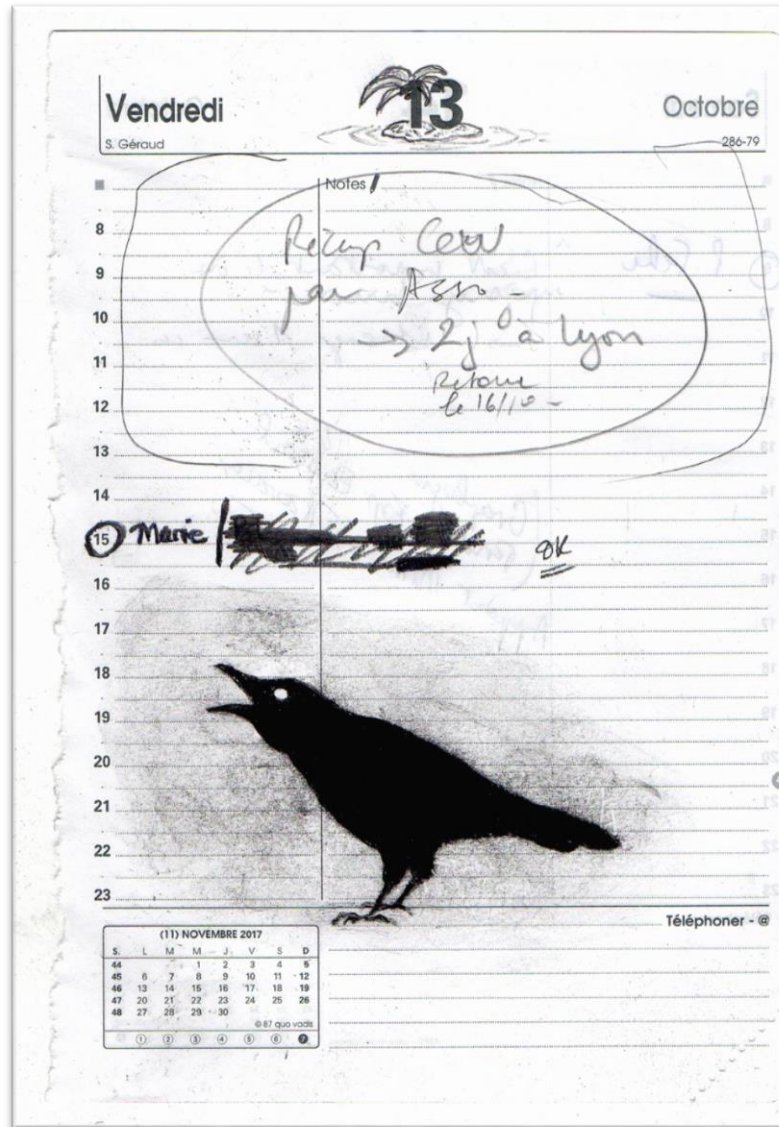 Vendredi
13
Octobre
S. Géraud
286-79
Notes
8
9
10
11
12
13
14
15
16
17
18
19
20
21
22
23
Récup
par Asso -
→ 2j à Lyon
Retour
le 16/10 -
Marie
OK
Téléphoner - @
(11) NOVEMBRE 2017
S. L M M J V S D
44 1 2 3 4 5
45 6 7 8 9 10 11 12
46 13 14 15 16 17 18 19
47 20 21 22 23 24 25 26
48 27 28 29 30
© 87 quo vadis
1 2 3 4 5 6 7